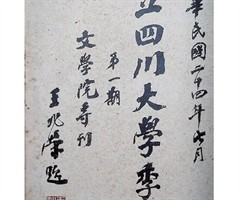 華民國二十四年七月
立四川大學季
第一期
文學院專刊
王兆榮題